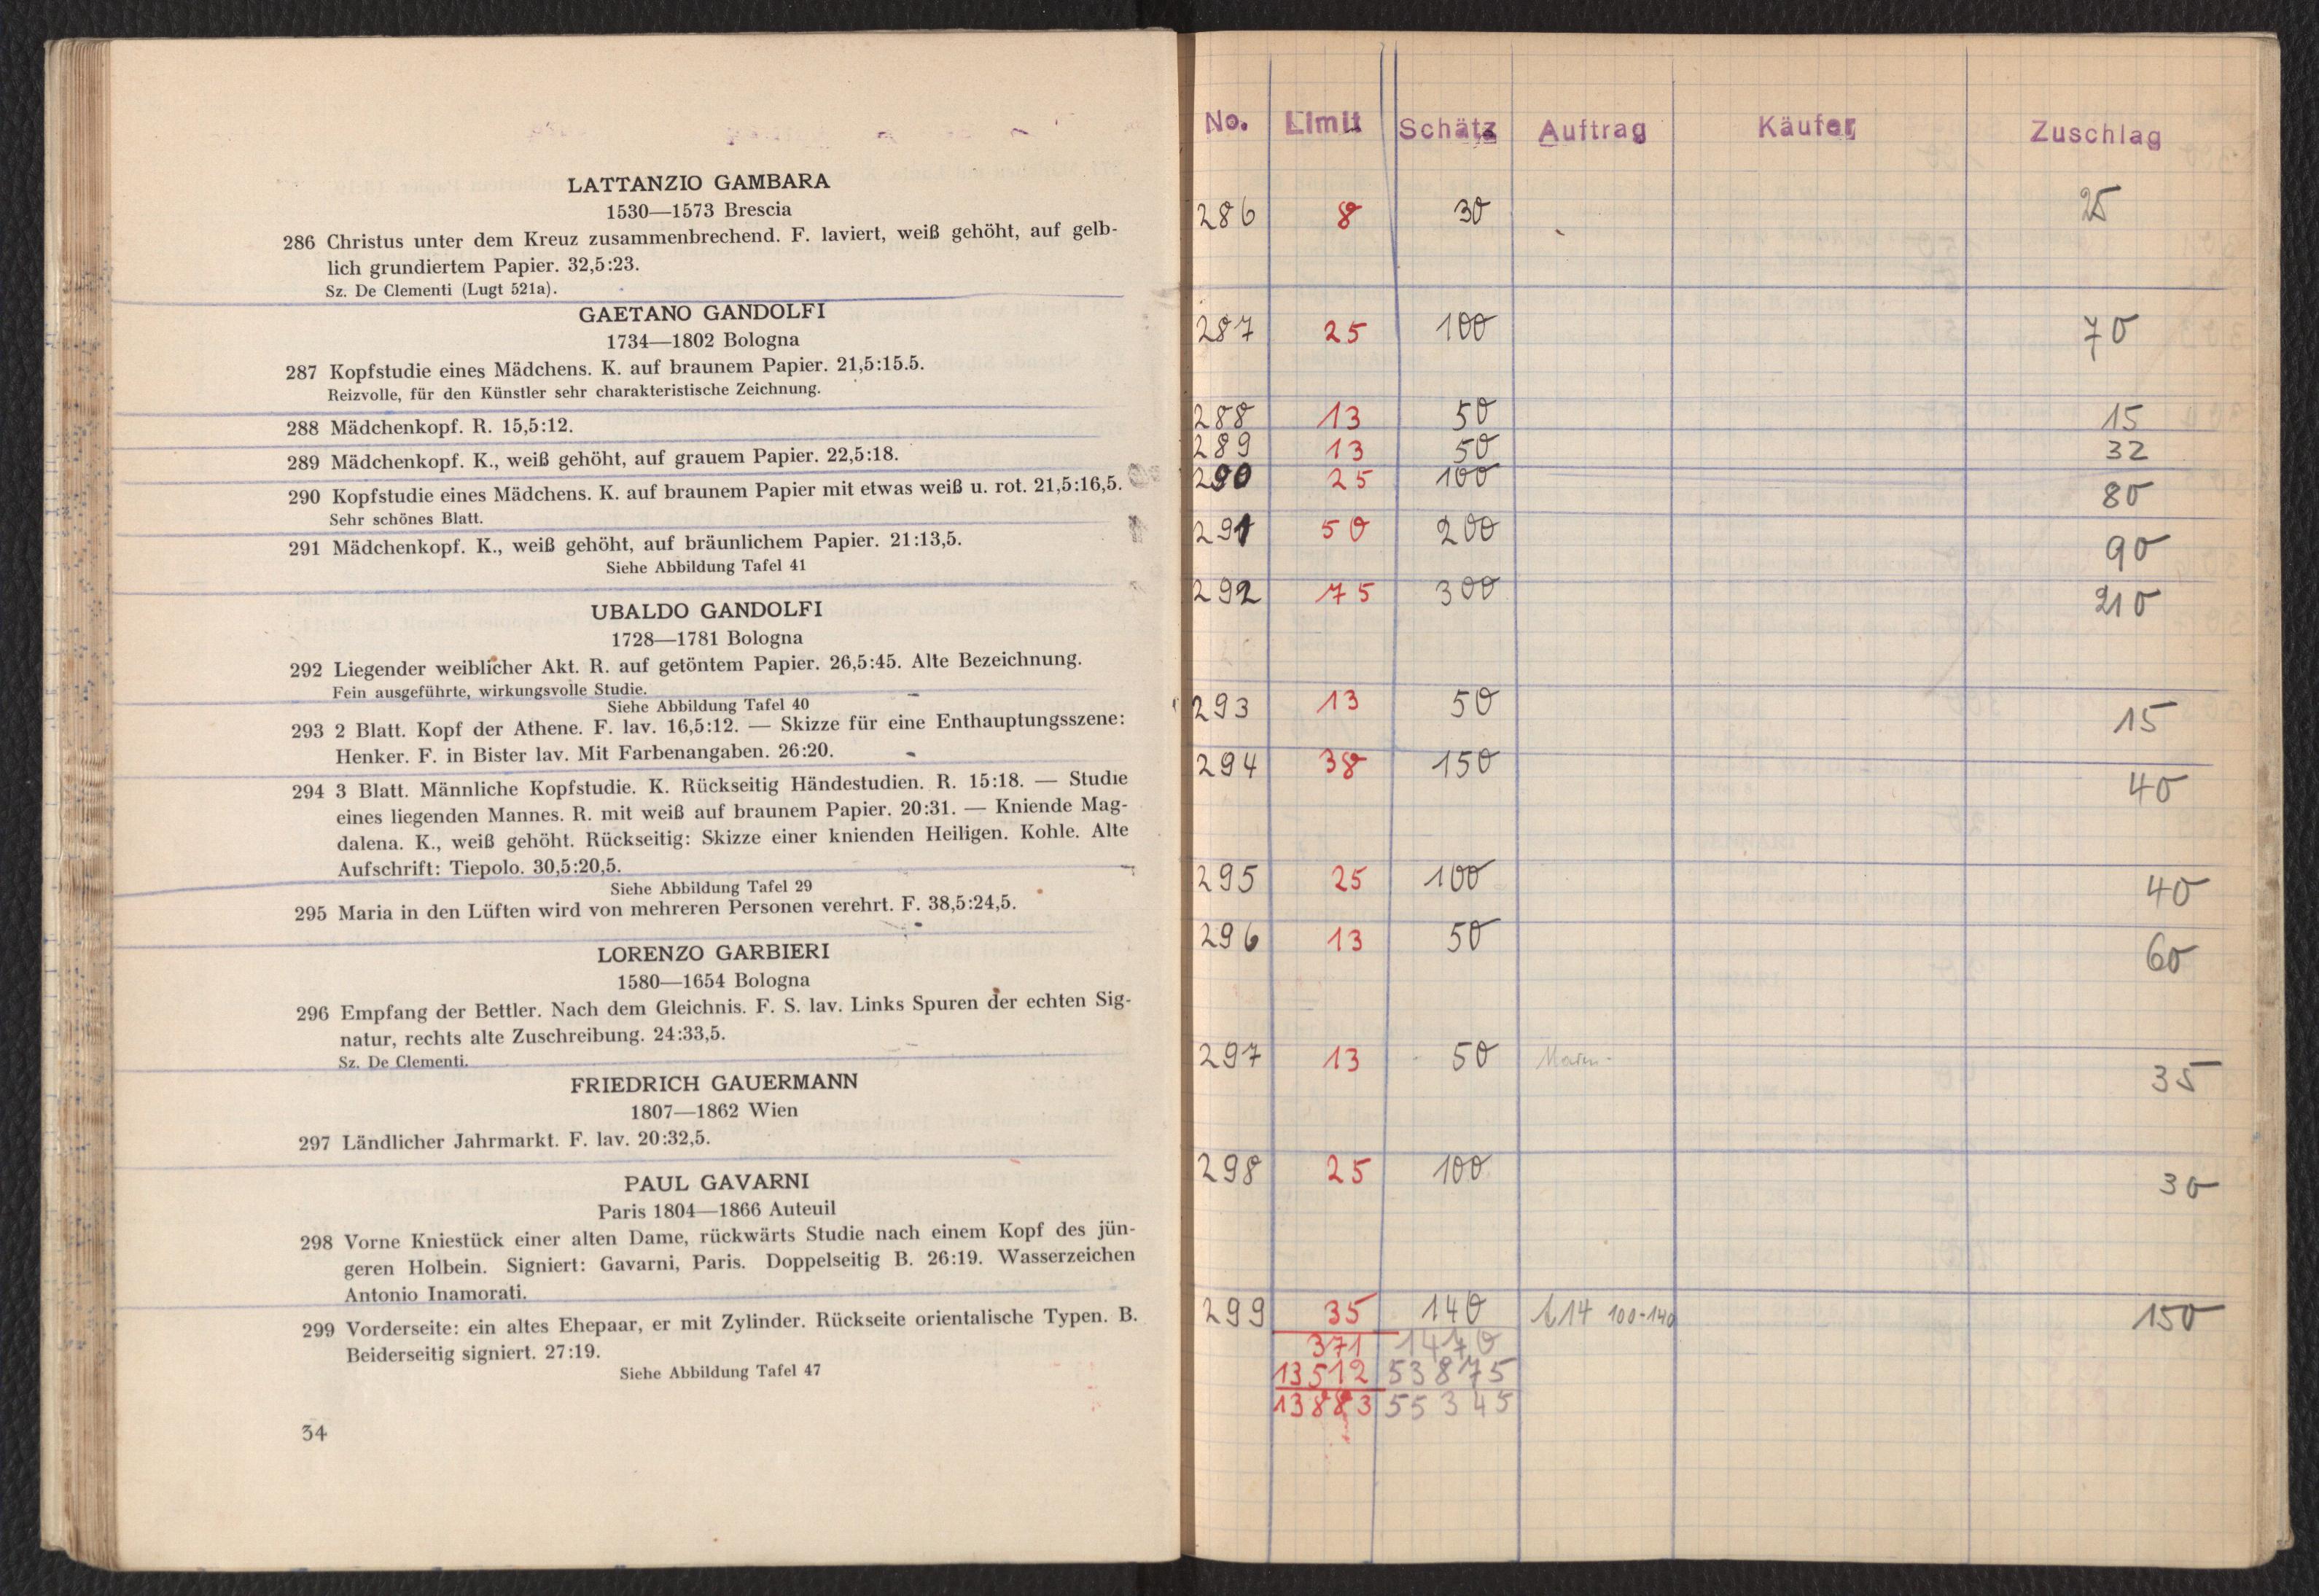 LATTANZIO GAMBARA
1530—1573 Brescia
286 Christus unter dem Kreuz zusammenbrechend. F. laviert, weiß gehöht, auf gelb-
lich grundiertem Papier. 32,5:23.
Sz. De Clementi (Lugt 521a).
GAETANO GANDOLFI
1734—1802 Bologna
287 Kopfstudie eines Mädchens. K. auf braunem Papier. 21,5:15.5.
Reizvolle, für den Künstler sehr charakteristische Zeichnung.
288 Mädchenkopf. R. 15,5:12.
289 Mädchenkopf. K., weiß gehöht, auf grauem Papier. 22,5:18.
290 Kopfstudie eines Mädchens. K. auf braunem Papier mit etwas weiß u. rot. 21,5:16,5.
Sehr schönes Blatt.
291 Mädchenkopf. K., weiß gehöht, auf bräunlichem Papier. 21:13,5.
Siehe Abbildung Tafel 41
UBALDO GANDOLFI
1728—1781 Bologna
292 Liegender weiblicher Akt. R. auf getöntem Papier. 26,5:45. Alte Bezeichnung.
Fein ausgeführte, wirkungsvolle Studie.
Siehe Abbildung Tafel 40
293 2 Blatt. Kopf der Athene. F. lav. 16,5:12. — Skizze für eine Enthauptungsszene:
Henker. F. in Bister lav. Mit Farbenangaben. 26:20.
294 3 Blatt. Männliche Kopfstudie. K. Rückseitig Händestudien. R. 15:18. — Studie
eines liegenden Mannes. R. mit weiß auf braunem Papier. 20:31. — Kniende Mag-
dalena. K., weiß gehöht. Rückseitig: Skizze einer knienden Heiligen. Kohle. Alte
Aufschrift: Tiepolo. 30,5:20,5.
Siehe Abbildung Tafel 29
295 Maria in den Lüften wird von mehreren Personen verehrt. F. 38,5:24,5.
LORENZO GARBIERI
1580—1654 Bologna
296 Empfang der Bettler. Nach dem Gleichnis. F. S. lav. Links Spuren der echten Sig-
natur, rechts alte Zuschreibung. 24:33,5.
Sz. De Clementi.
FRIEDRICH GAUERMANN
1807—1862 Wien
297 Ländlicher Jahrmarkt. F. lav. 20:32,5.
PAUL GAVARNI
Paris 1804—1866 Auteuil
298 Vorne Kniestück einer alten Dame, rückwärts Studie nach einem Kopf des jün-
geren Holbein. Signiert: Gavarni, Paris. Doppelseitig B. 26:19. Wasserzeichen
Antonio Inamorati.
299 Vorderseite: ein altes Ehepaar, er mit Zylinder. Rückseite orientalische Typen. B.
Beiderseitig signiert. 27:19.
Siehe Abbildung Tafel 47
34
No. Limit Schätz Auftrag Käufer Zuschlag
286 8 30 25
287 25 100 70
288 13 50 15
289 13 50 32
290 25 100 80
291 50 200 90
292 75 300 210
293 13 50 15
294 38 150 40
295 25 100 40
296 13 50 60
297 13 50 35
298 25 100 30
299 35 140 614 100-140 150
371 1470
13512 53875
13883 55345